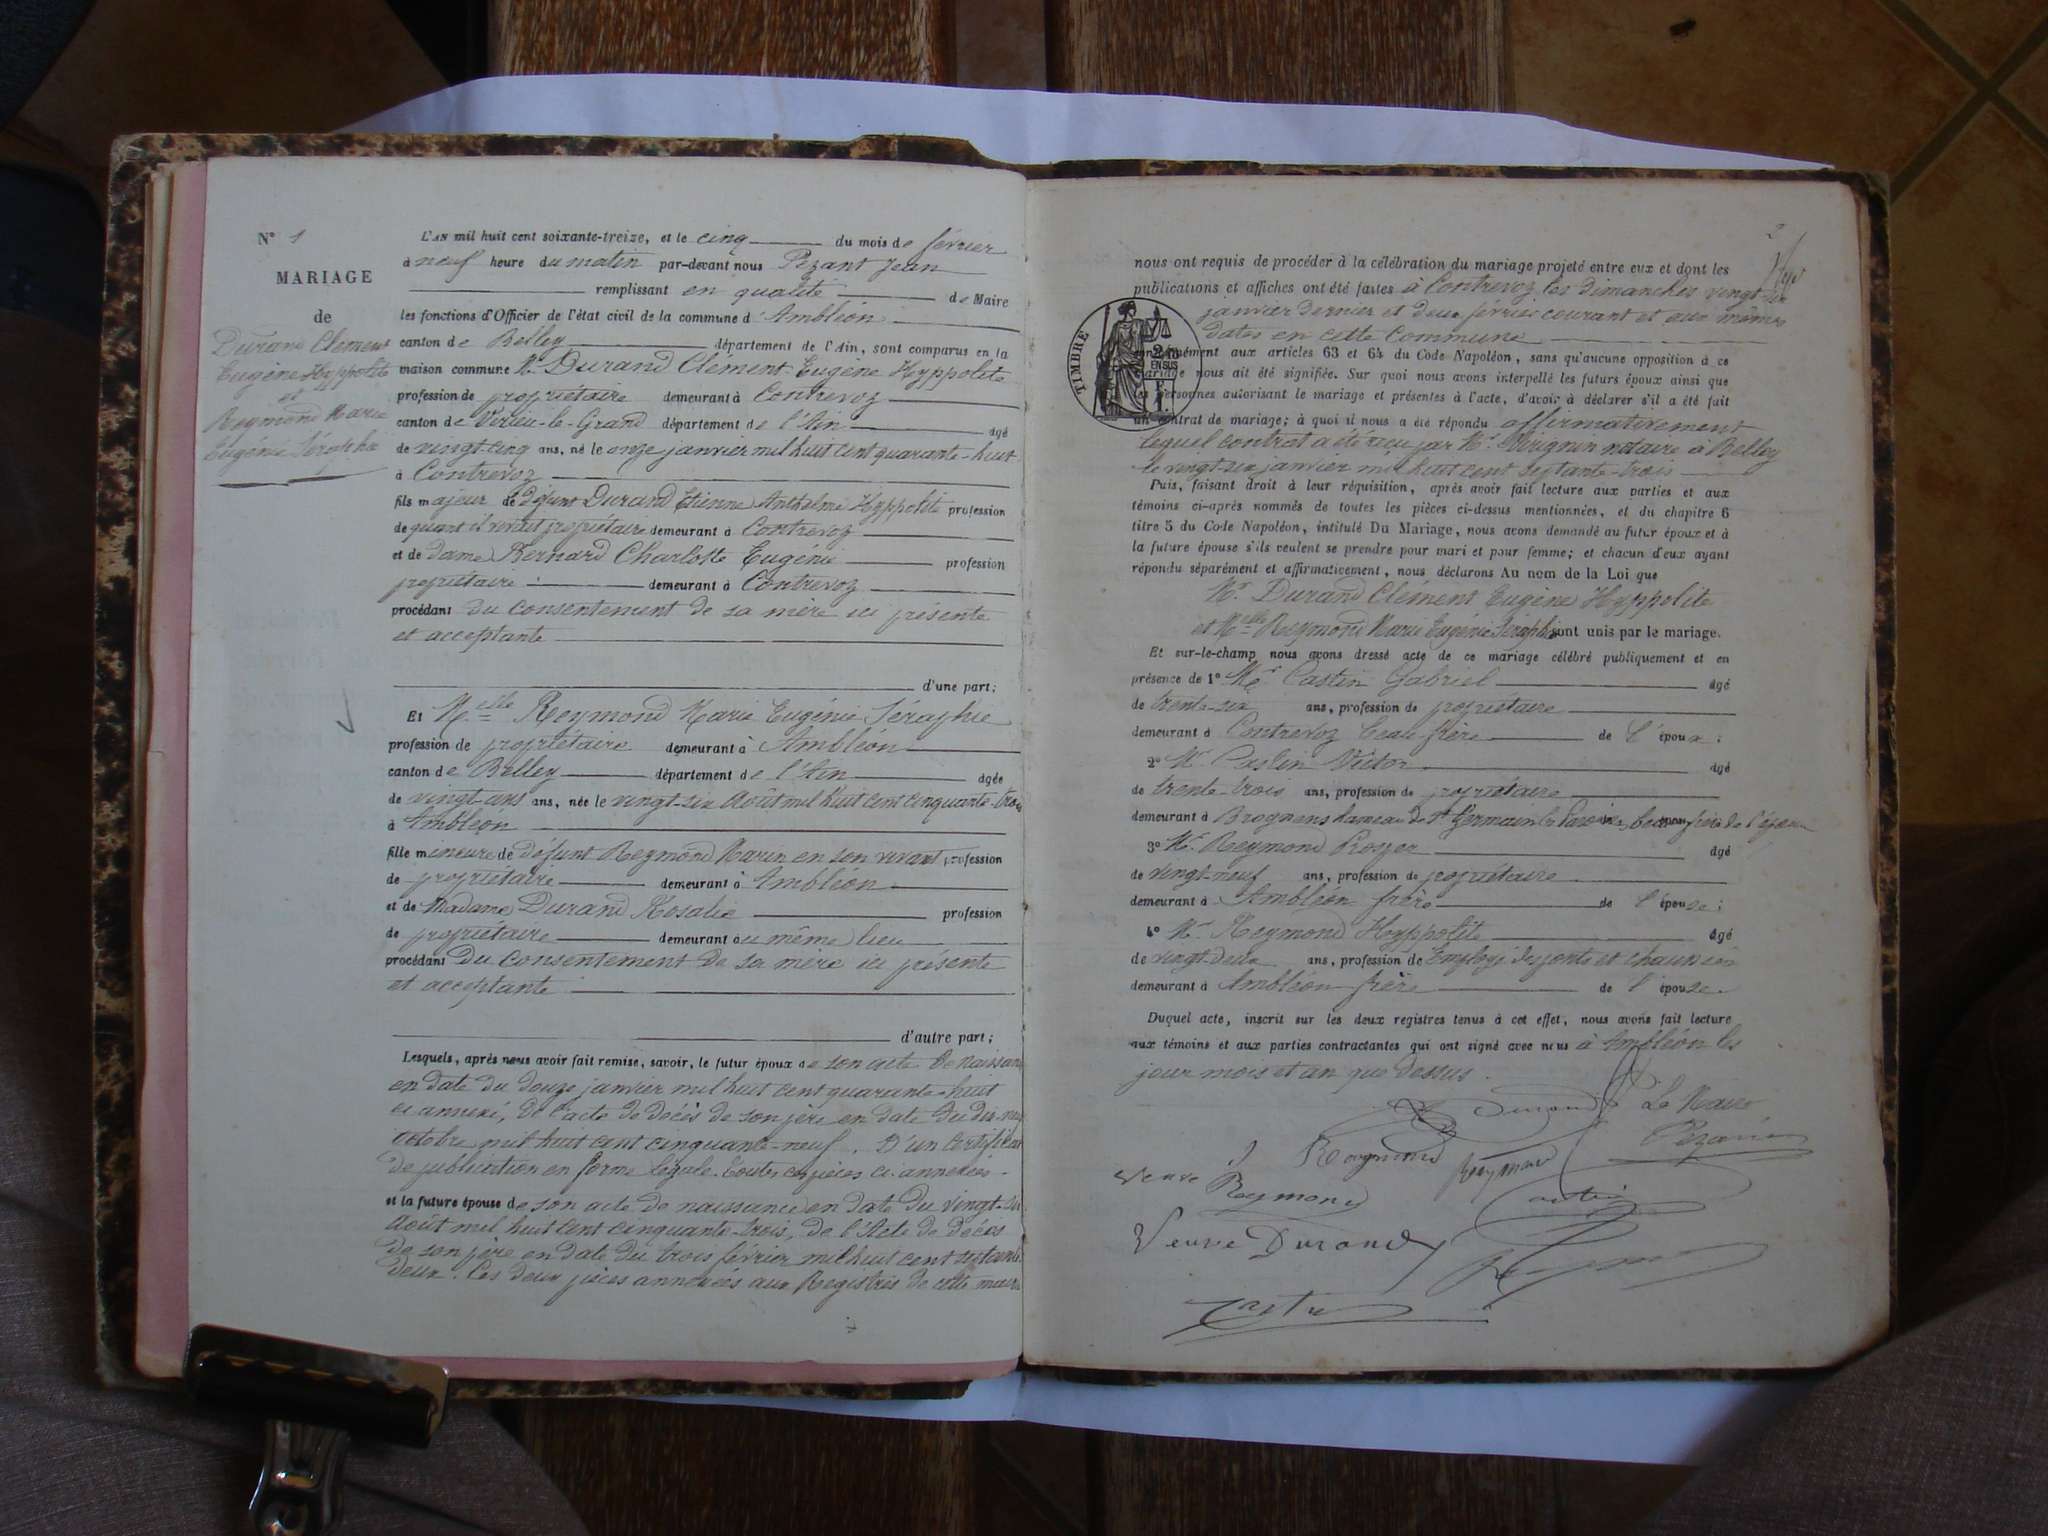 N° 1
MARIAGE
de
Durand Clément
Eugène Hyppolite
et
Reymond Marie
Eugénie Séraphie
L'AN mil huit cent soixante-treize, et le cinq du mois de février
à neuf heure du matin par-devant nous Pezant Jean
remplissant en qualité de Maire
les fonctions d'Officier de l'état civil de la commune d'Ambléon
canton de Belley département de l'Ain, sont comparus en la
maison commune Mr Durand Clément Eugène Hyppolite
profession de propriétaire demeurant à Contrevoz
canton de Virieu-le-Grand département de l'Ain âgé
de vingt-cinq ans, né le onze janvier mil huit cent quarante-huit
à Contrevoz
fils majeur de défunt Durand Etienne Anthelme Hyppolite profession
de quant il vivait propriétaire demeurant à Contrevoz
et de dame Bernard Charlotte Eugénie profession
propriétaire demeurant à Contrevoz
procédant du consentement de sa mère ici présente
et acceptante
d'une part;
Et Melle Reymond Marie Eugénie Séraphie
profession de propriétaire demeurant à Ambléon
canton de Belley département de l'Ain âgée
de vingt-ans ans, née le vingt-six Août mil huit cent cinquante-trois
à Ambléon
fille mineure de défunt Reymond Marin en son vivant profession
de propriétaire demeurant à Ambléon
et de Madame Durand Rosalie profession
de propriétaire demeurant au même lieu
procédant du consentement de sa mère ici présente
et acceptante
d'autre part;
Lesquels, après nous avoir fait remise, savoir, le futur époux de son acte de naissance
en date du douze janvier mil huit cent quarante-huit
ci annexé, de l'acte de décès de son père en date du dix-neuf
octobre mil huit cent cinquante-neuf. D'un certificat
de publication en forme légale. Toutes ces pièces ci-annexées.
et la future épouse de son acte de naissance en date du vingt-six
Août mil huit cent cinquante-trois, de l'Acte de décès
de son père en date du trois février mil huit cent septante
deux. Ces deux pièces annexées aux Registres de cette mairie
2
nous ont requis de procéder à la célébration du mariage projeté entre eux et dont les
publications et affiches ont été faites à Contrevoz les dimanches vingt-six
janvier dernier et deux février courant et aux mêmes
dates en cette Commune
TIMBRE
2/10
EN SUS
conformément aux articles 63 et 64 du Code Napoléon, sans qu'aucune opposition à ce
mariage nous ait été signifiée. Sur quoi nous avons interpellé les futurs époux ainsi que
les personnes autorisant le mariage et présentes à l'acte, d'avoir à déclarer s'il a été fait
un contrat de mariage; à quoi il nous a été répondu affirmativement
lequel contrat a été reçu par Me Virignin notaire à Belley
le vingt-six janvier mil huit cent septante-trois
Puis, faisant droit à leur réquisition, après avoir fait lecture aux parties et aux
témoins ci-après nommés de toutes les pièces ci-dessus mentionnées, et du chapitre 6
titre 5 du Code Napoléon, intitulé Du Mariage, nous avons demandé au futur époux et à
la future épouse s'ils veulent se prendre pour mari et pour femme; et chacun d'eux ayant
répondu séparément et affirmativement, nous déclarons Au nom de la Loi que
Mr Durand Clément Eugène Hyppolite
et Melle Reymond Marie Eugénie Séraphie sont unis par le mariage.
Et sur-le-champ nous avons dressé acte de ce mariage célébré publiquement et en
présence de 1° Mr Castin Gabriel âgé
de trente-six ans, profession de propriétaire
demeurant à Contrevoz beau frère de l'époux;
2° Mr Castin Victor âgé
de trente-trois ans, profession de propriétaire
demeurant à Brognens hameau de St Germain les Paroisses, beau frère de l'époux
3° Mr Reymond Prosper âgé
de vingt-neuf ans, profession de propriétaire
demeurant à Ambléon frère de l'épouse;
4° Mr Reymond Hyppolite âgé
de vingt-deux ans, profession de Employé des ponts et chaussées
demeurant à Ambléon frère de l'épouse.
Duquel acte, inscrit sur les deux registres tenus à cet effet, nous avons fait lecture
aux témoins et aux parties contractantes qui ont signé avec nous à Ambléon les
jour mois et an que dessus.
Durand Le Maire
Reymond Reymond Pezant
Veuve Reymond Castin
Veuve Durand
Castin